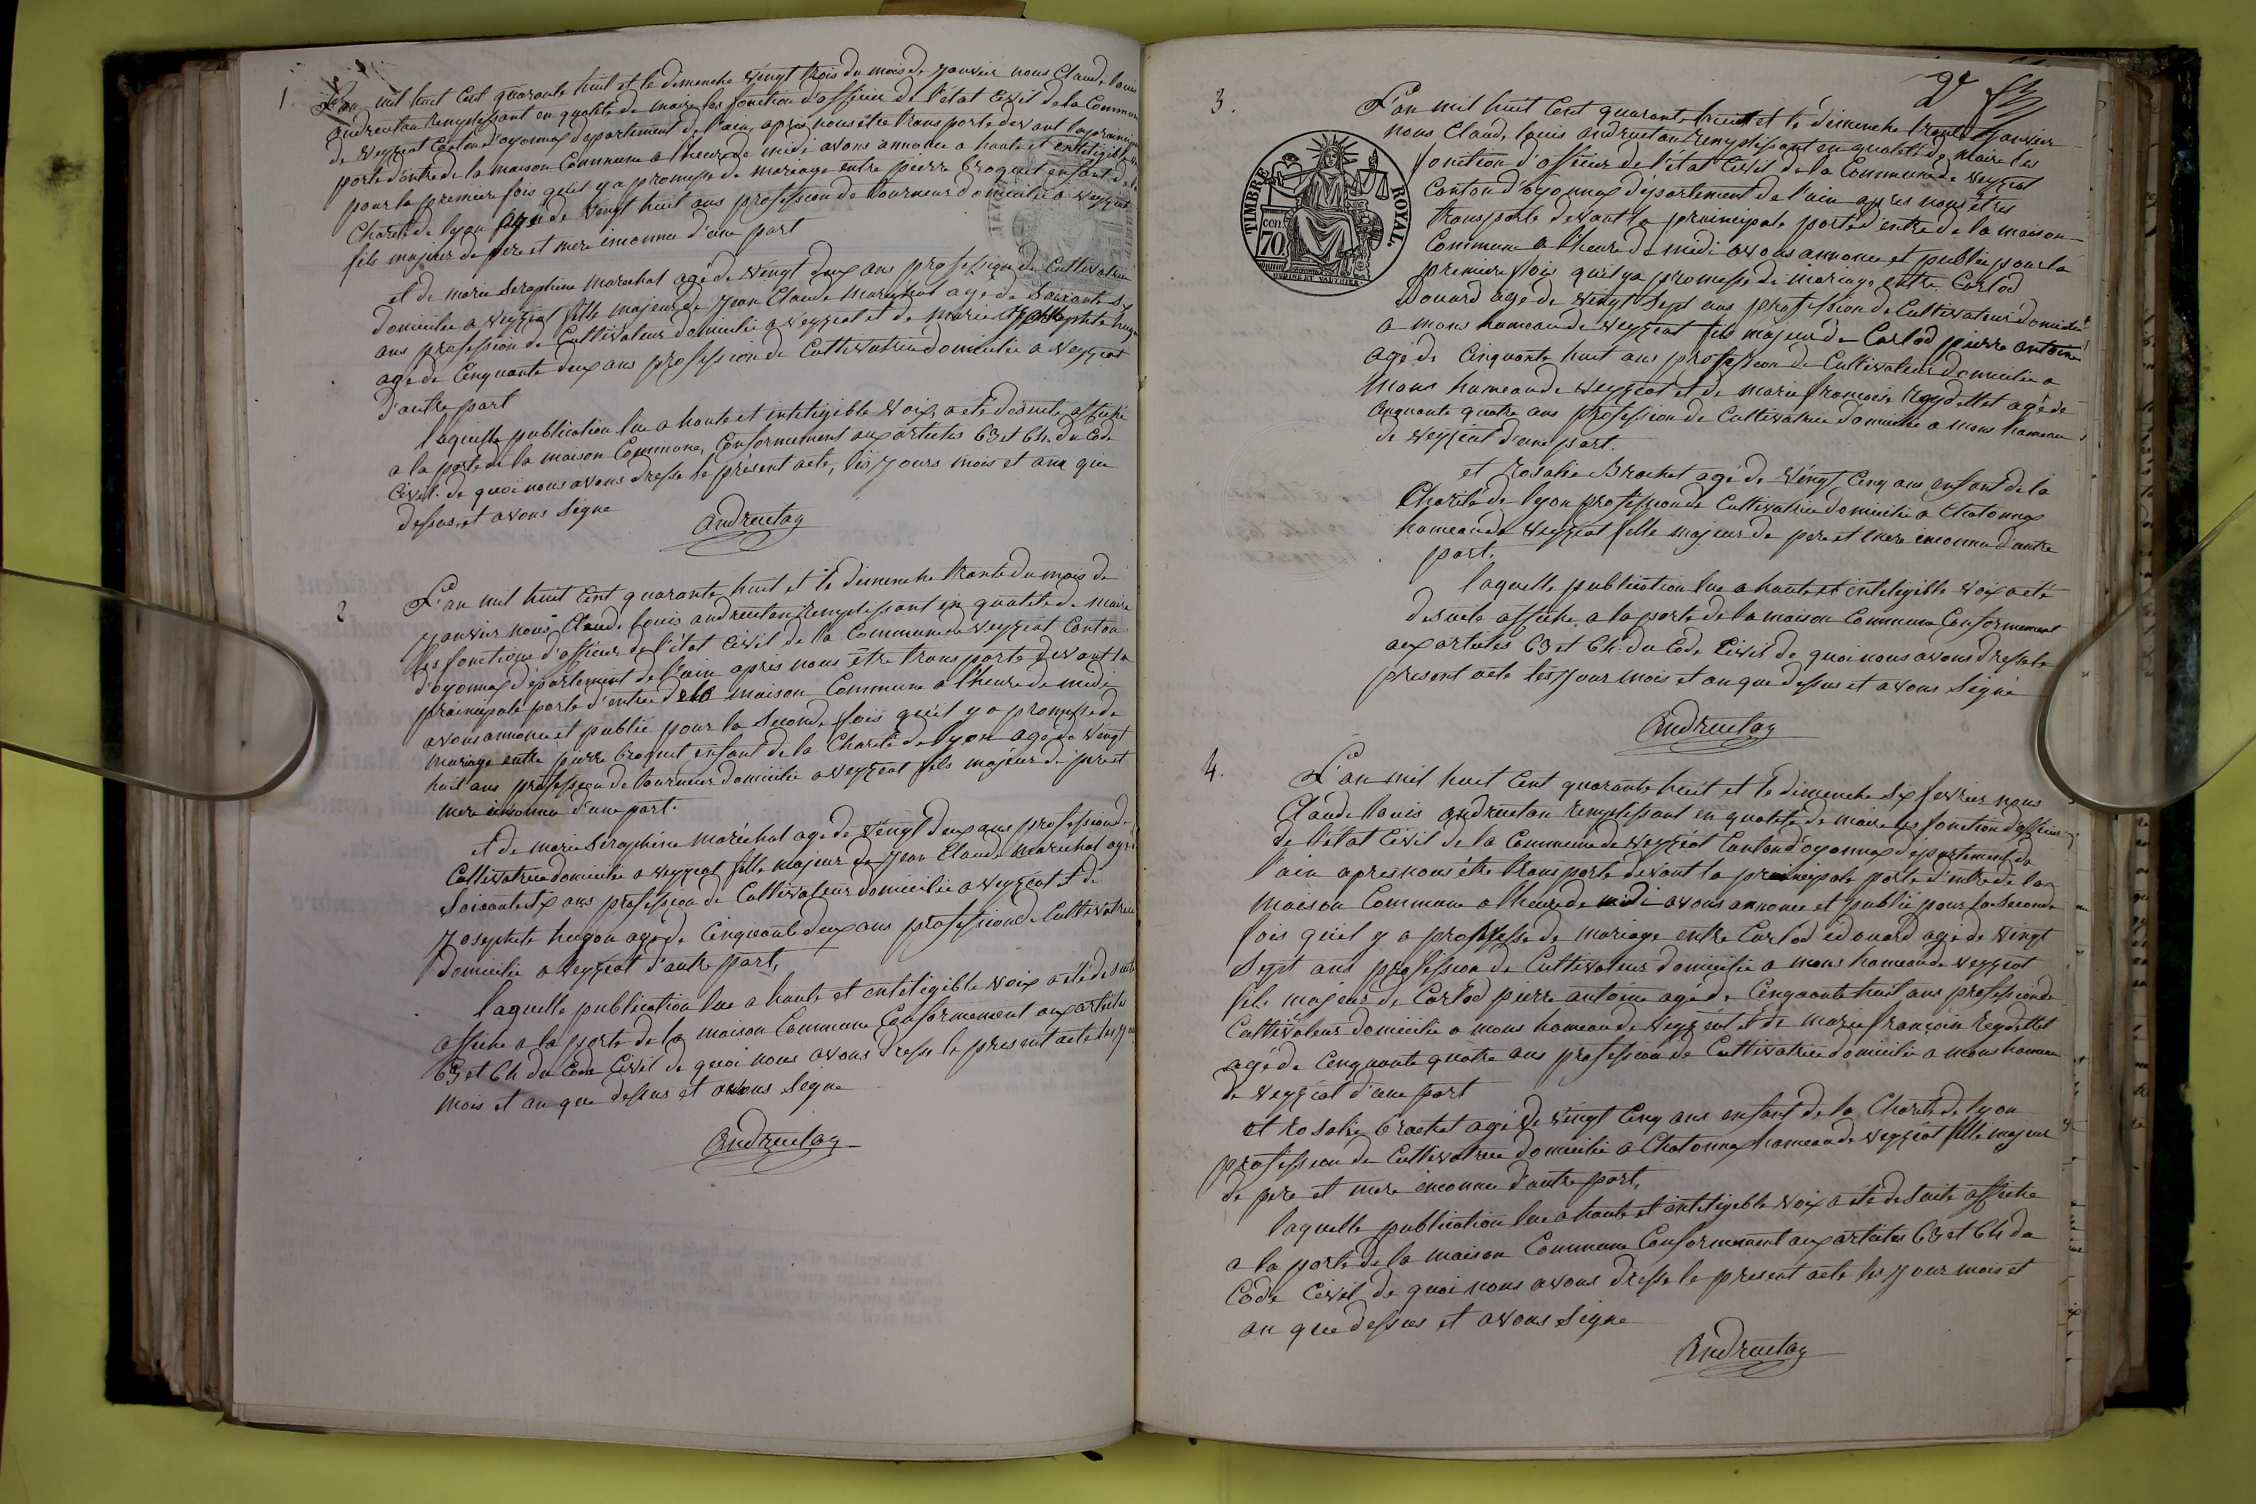 1
L'an mil huit Cent quarante huit et le dimenche vingt trois du mois de Janvier nous Claude louis
andruetan remplissant en qualité de maire les fonction d'officier de l'état Civil de la Commune
de veyziat Canton d'oyonnax departement de l'ain, apres nous être transporte devant la
porte d'entre de la maison Commune a l'heure de midi avons annonce a haute et inteligible
pour la premiere fois qu'il y a promesse de mariage entre pierre broquet enfant de la
Charité de lyon agé de vingt huit ans profession de tourneur domicilie a veyziat
fils majeur de pere et mere inconnu d'une part
et de marie Seraphine marechal agé de vingt deux ans profession de Cultivatrice
domicilie a veyziat fille majeur de Jean Claude marechal agé de Soixante
ans profession de Cultivateur domicilie a veyziat et de marie
agé de Cinquante deux ans profession de Cultivatrice domicilie a veyziat
d'autre part
laquelle publication lue a haute et inteligible voix, a eté desuite affiché
a la porte de la maison Commune, Conformement aux artictes 63 et 64 du Code
Civil. de quoi nous avons dresse le présent acte, les Jours mois et ans que
dessus, et avons Signe
andruetan
2
L'an mil huit Cent quarante huit et le dimenche trente du mois de
Janvier nous Claude louis andruetan remplissant en qualité de maire
les fonctions d'officier de l'état Civil de la Commune de veyziat Canton
d'oyonnax département de l'ain apres nous être transporte devant la
prainçipale porte d'entre de la maison Commune a l'heure de midi
avons annonce et publié pour la Seconde fois qu'il y a promesse de
mariage entre pierre broquet enfant de la Charité de lyon agé de vingt
huit ans profession de tourneur domicilie a veyziat fils majeur de pere et
mere inconnu d'une part.
et de marie Seraphine maréchal agé de vingt deux ans profession de
Cultivatrice domicilie a veyziat fille majeur de Jean Claude marechal agé
Soixante Six ans profession de Cultivateur domicilie a veyziat et de
Josephete hugon agé de Cinquante deux ans profession de Cultivatrice
domicilie a veyziat d'autre part,
laquelle publication lue a haute et inteligible voix a eté de suite
affiche a la porte de la maison Commune Conformement aux articte
63 et 64 du Code Civil de quoi nous avons dresse le present acte les Jour
mois et an que dessus et avons Signe
Andruetan
2e
3.
L'an mil huit Cent quarante huit et le dimenche trente Janvier
nous Claude louis andruetan remplissant en qualité de maire les
fonction d'officier de l'état Civil de la Commune de veyziat
Canton d'oyonnax département de l'ain apres nous êtres
transporte devant la prainçipale porte d'entre de la maison
Commune a l'heure de midi avons annonce et publie pour la
premiere fois qu'il y a promesse de mariage entre Carlod
Douard agé de vingt Sept ans profession de Cultivateur domicilie
a mons hameau de veyziat fils majeur de Carlod pierre antoine
agé de Cinquante huit ans profession de Cultivateur domicilie a
mons hameau de veyziat et de marie francoise Reydellet agé de
Cinquante quatre ans profession de Cultivatrice domicilie a mons hameau
de veyziat d'une part.
et Rosalie Brachet agé de vingt Cinq ans enfant de la
Charité de lyon profession de Cultivatrice domicilie a Chatonnax
hameau de veyziat fille majeur de pere et mere inconnu d'autre
part.
laquelle publication lue a haute et inteligible voix a eté
desuite affiche a la porte de la maison Commune Conformement
aux artictes 63 et 64 du Code Civil de quoi nous avons dresse le
present acte les Jour mois et an que dessus et avons Signé
Andruetan
TIMBRE ROYAL.
70 cen.
4.
L'an mil huit Cent quarante huit et le dimenche Six fevrier nous
Claude louis andruetan remplissant en qualité de maire les fonction d'officier
de l'état Civil de la Commune de veyziat Canton d'oyonnax département de
l'ain apres nous être transporte devant la prainçipale porte d'entre de la
maison Commune a l'heure de midi avons annonce et publié pour la Seconde
fois qu'il y a promesse de mariage entre Carlod edouard agé de vingt
Sept ans profession de Cultivateur domicilie a mons hameau de veyziat
fils majeur de Carlod pierre antoine agé de Cinquante huit ans profession de
Cultivateur domicilie a mons hameau de veyziat et de marie françoise Reydellet
agé de Cinquante quatre ans profession de Cultivatrice domicilie a mons hameau
de veyziat d'une part
et rosalie brachet agé de vingt Cinq ans enfant de la Charité de lyon
profession de Cultivatrice domicilie a Chatonnax hameau de veyziat fille majeur
de pere et mere inconnu d'autre part,
laquelle publication lue a haute et inteligible voix a été desuite affiche
a la porte de la maison Commune Conformement aux artictes 63 et 64 du
Code Civil de quoi nous avons dresse le present acte les Jour mois et
an que dessus et avons Signe
Andruetan